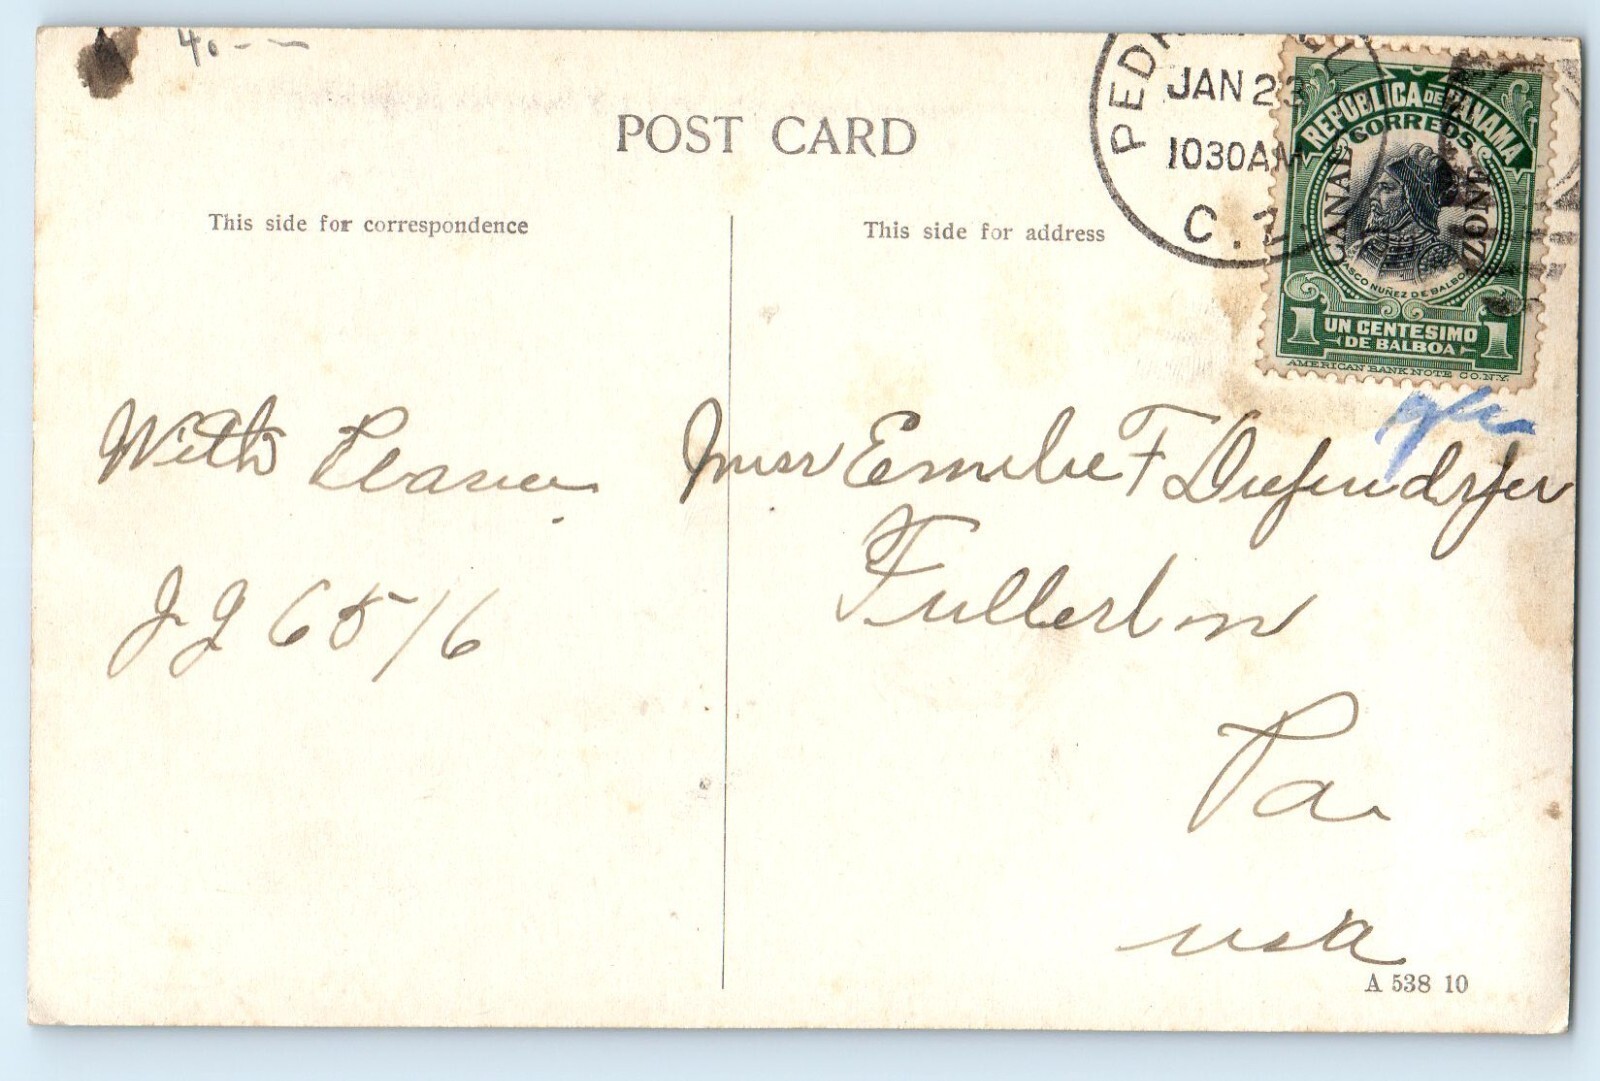 40 - -
POST CARD
This side for correspondence
This side for address
JAN 23
1030AM
C. Z.
REPUBLICA DE PANAMA
CORREOS
CANAL ZONE
VASCO NUÑEZ DE BALBOA
1 UN CENTESIMO 1
DE BALBOA
AMERICAN BANK NOTE CO. N.Y.
With
J J 6516
Miss Emilie F Diefenderfer
Fullerton
Pa.
USA
A 538 10